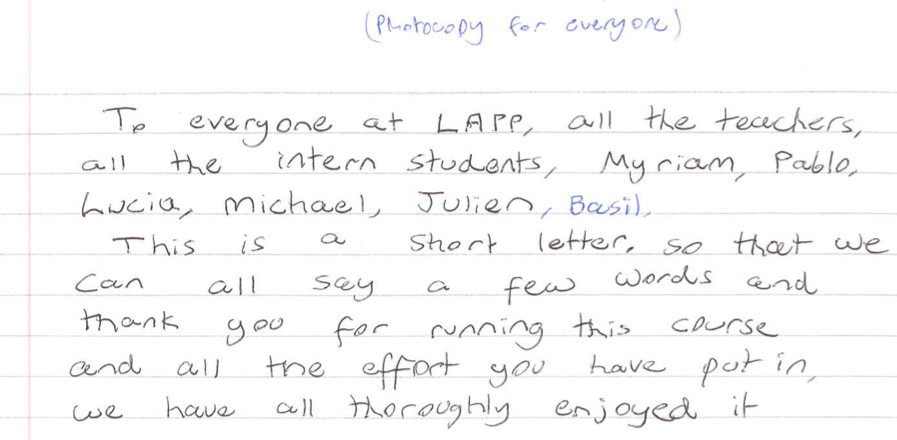 (Photocopy for everyone)
To everyone at LAPP, all the teachers,
all the intern students, Myriam, Pablo,
Lucia, Michael, Julien, Basil,
This is a short letter, so that we
can all say a few words and
thank you for running this course
and all the effort you have put in,
we have all thoroughly enjoyed it